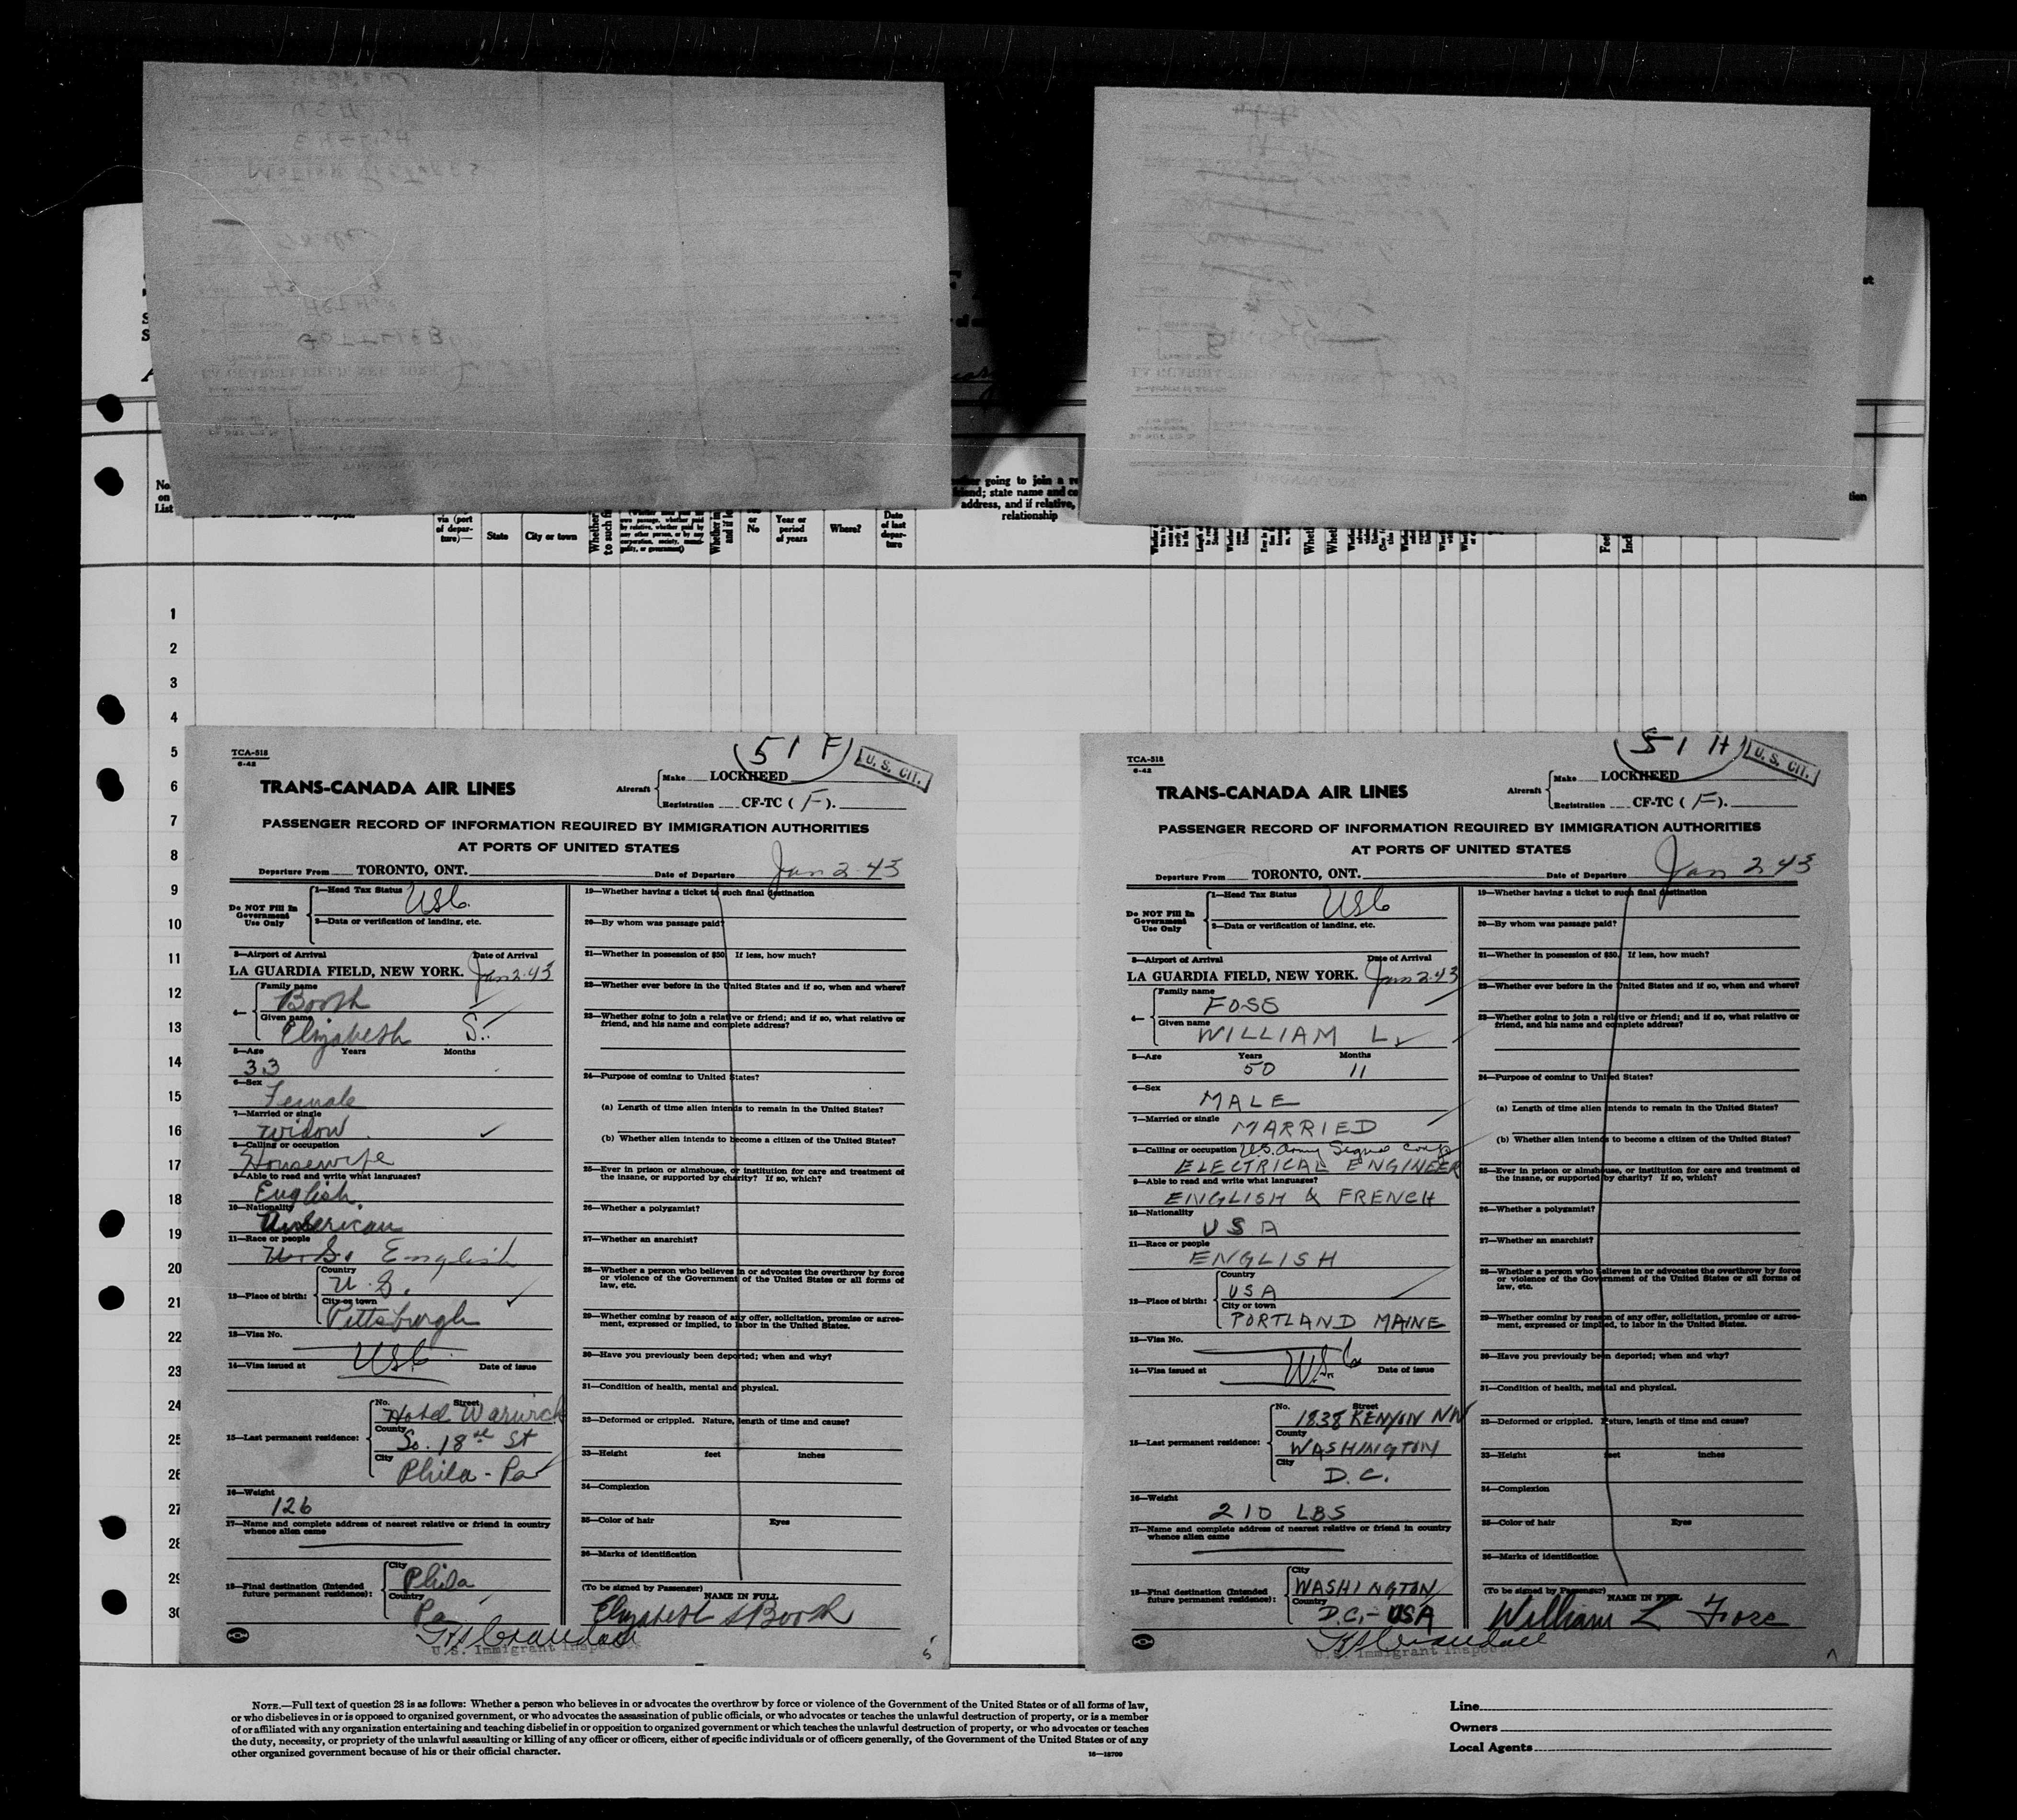 No
on
List
via (port
of depar-
ture)—
State
City or town
No
Year or
period
of years
Where?
Date
of last
depar-
ture
going to join a
state name and
address, and if relative,
relationship
1
2
3
4
5
6
7
8
9
10
11
12
13
14
15
16
17
18
19
20
21
22
23
24
25
26
27
28
29
30
TCA-518
6-42
51 F
U. S. CIT.
TRANS-CANADA AIR LINES
Aircraft
Make LOCKHEED
Registration CF-TC ( F ).
PASSENGER RECORD OF INFORMATION REQUIRED BY IMMIGRATION AUTHORITIES
AT PORTS OF UNITED STATES
Departure From TORONTO, ONT. Date of Departure Jan 2-43
Do NOT Fill In
Government
Use Only
1—Head Tax Status USC
2—Data or verification of landing, etc.
3—Airport of Arrival Date of Arrival
LA GUARDIA FIELD, NEW YORK. Jan 2-43
4—
Family name
Booth
Given name
Elizabeth S.
5—Age Years Months
33
6—Sex
Female
7—Married or single
Widow
8—Calling or occupation
Housewife
9—Able to read and write what languages?
English
10—Nationality
American
11—Race or people
U.S. English
12—Place of birth:
Country
U.S.
City or town
Pittsburgh
13—Visa No.
USC
14—Visa issued at Date of issue
15—Last permanent residence:
No. Street
Hotel Warwick
County
So. 18th St
City
Phila - Pa
16—Weight
126
17—Name and complete address of nearest relative or friend in country
whence alien came
18—Final destination (Intended
future permanent residence):
City
Phila
Country
Pa
19—Whether having a ticket to such final destination
20—By whom was passage paid?
21—Whether in possession of $50. If less, how much?
22—Whether ever before in the United States and if so, when and where?
23—Whether going to join a relative or friend; and if so, what relative or
friend, and his name and complete address?
24—Purpose of coming to United States?
(a) Length of time alien intends to remain in the United States?
(b) Whether alien intends to become a citizen of the United States?
25—Ever in prison or almshouse, or institution for care and treatment of
the insane, or supported by charity? If so, which?
26—Whether a polygamist?
27—Whether an anarchist?
28—Whether a person who believes in or advocates the overthrow by force
or violence of the Government of the United States or all forms of
law, etc.
29—Whether coming by reason of any offer, solicitation, promise or agree-
ment, expressed or implied, to labor in the United States.
30—Have you previously been deported; when and why?
31—Condition of health, mental and physical.
32—Deformed or crippled. Nature, length of time and cause?
33—Height feet inches
34—Complexion
35—Color of hair Eyes
36—Marks of identification
(To be signed by Passenger)
NAME IN FULL
Elizabeth S Booth
U.S. Immigrant Inspector
TCA-518
6-42
51 H
U. S. CIT.
TRANS-CANADA AIR LINES
Aircraft
Make LOCKHEED
Registration CF-TC ( F ).
PASSENGER RECORD OF INFORMATION REQUIRED BY IMMIGRATION AUTHORITIES
AT PORTS OF UNITED STATES
Departure From TORONTO, ONT. Date of Departure Jan 2-43
Do NOT Fill In
Government
Use Only
1—Head Tax Status USC
2—Data or verification of landing, etc.
3—Airport of Arrival Date of Arrival
LA GUARDIA FIELD, NEW YORK. Jan 2-43
4—
Family name
FOSS
Given name
WILLIAM L.
5—Age Years Months
50 11
6—Sex
MALE
7—Married or single
MARRIED
8—Calling or occupation U.S. Army Signal Corps
ELECTRICAL ENGINEER
9—Able to read and write what languages?
ENGLISH & FRENCH
10—Nationality
USA
11—Race or people
ENGLISH
12—Place of birth:
Country
USA
City or town
PORTLAND MAINE
13—Visa No.
USC
14—Visa issued at Date of issue
15—Last permanent residence:
No. Street
1838 KENYON NW
County
WASHINGTON
City
D.C.
16—Weight
210 LBS
17—Name and complete address of nearest relative or friend in country
whence alien came
18—Final destination (Intended
future permanent residence):
City
WASHINGTON
Country
D.C.- USA
19—Whether having a ticket to such final destination
20—By whom was passage paid?
21—Whether in possession of $50. If less, how much?
22—Whether ever before in the United States and if so, when and where?
23—Whether going to join a relative or friend; and if so, what relative or
friend, and his name and complete address?
24—Purpose of coming to United States?
(a) Length of time alien intends to remain in the United States?
(b) Whether alien intends to become a citizen of the United States?
25—Ever in prison or almshouse, or institution for care and treatment of
the insane, or supported by charity? If so, which?
26—Whether a polygamist?
27—Whether an anarchist?
28—Whether a person who believes in or advocates the overthrow by force
or violence of the Government of the United States or all forms of
law, etc.
29—Whether coming by reason of any offer, solicitation, promise or agree-
ment, expressed or implied, to labor in the United States.
30—Have you previously been deported; when and why?
31—Condition of health, mental and physical.
32—Deformed or crippled. Nature, length of time and cause?
33—Height feet inches
34—Complexion
35—Color of hair Eyes
36—Marks of identification
(To be signed by Passenger)
NAME IN FULL
William L Foss
U.S. Immigrant Inspector
NOTE.—Full text of question 28 is as follows: Whether a person who believes in or advocates the overthrow by force or violence of the Government of the United States or of all forms of law,
or who disbelieves in or is opposed to organized government, or who advocates the assassination of public officials, or who advocates or teaches the unlawful destruction of property, or is a member
of or affiliated with any organization entertaining and teaching disbelief in or opposition to organized government or which teaches the unlawful destruction of property, or who advocates or teaches
the duty, necessity, or propriety of the unlawful assaulting or killing of any officer or officers, either of specific individuals or of officers generally, of the Government of the United States or of any
other organized government because of his or their official character.
16—18700
Line
Owners
Local Agents